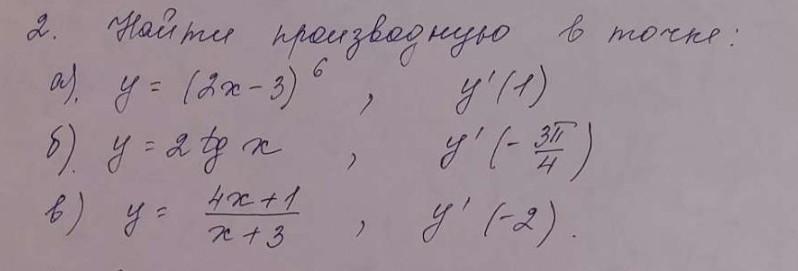 2. Найти производную в точке:
а). y = (2x-3)^6 , y'(1)
б). y = 2 tg x , y'(-3π/4)
в) y = (4x+1)/(x+3) , y'(-2).